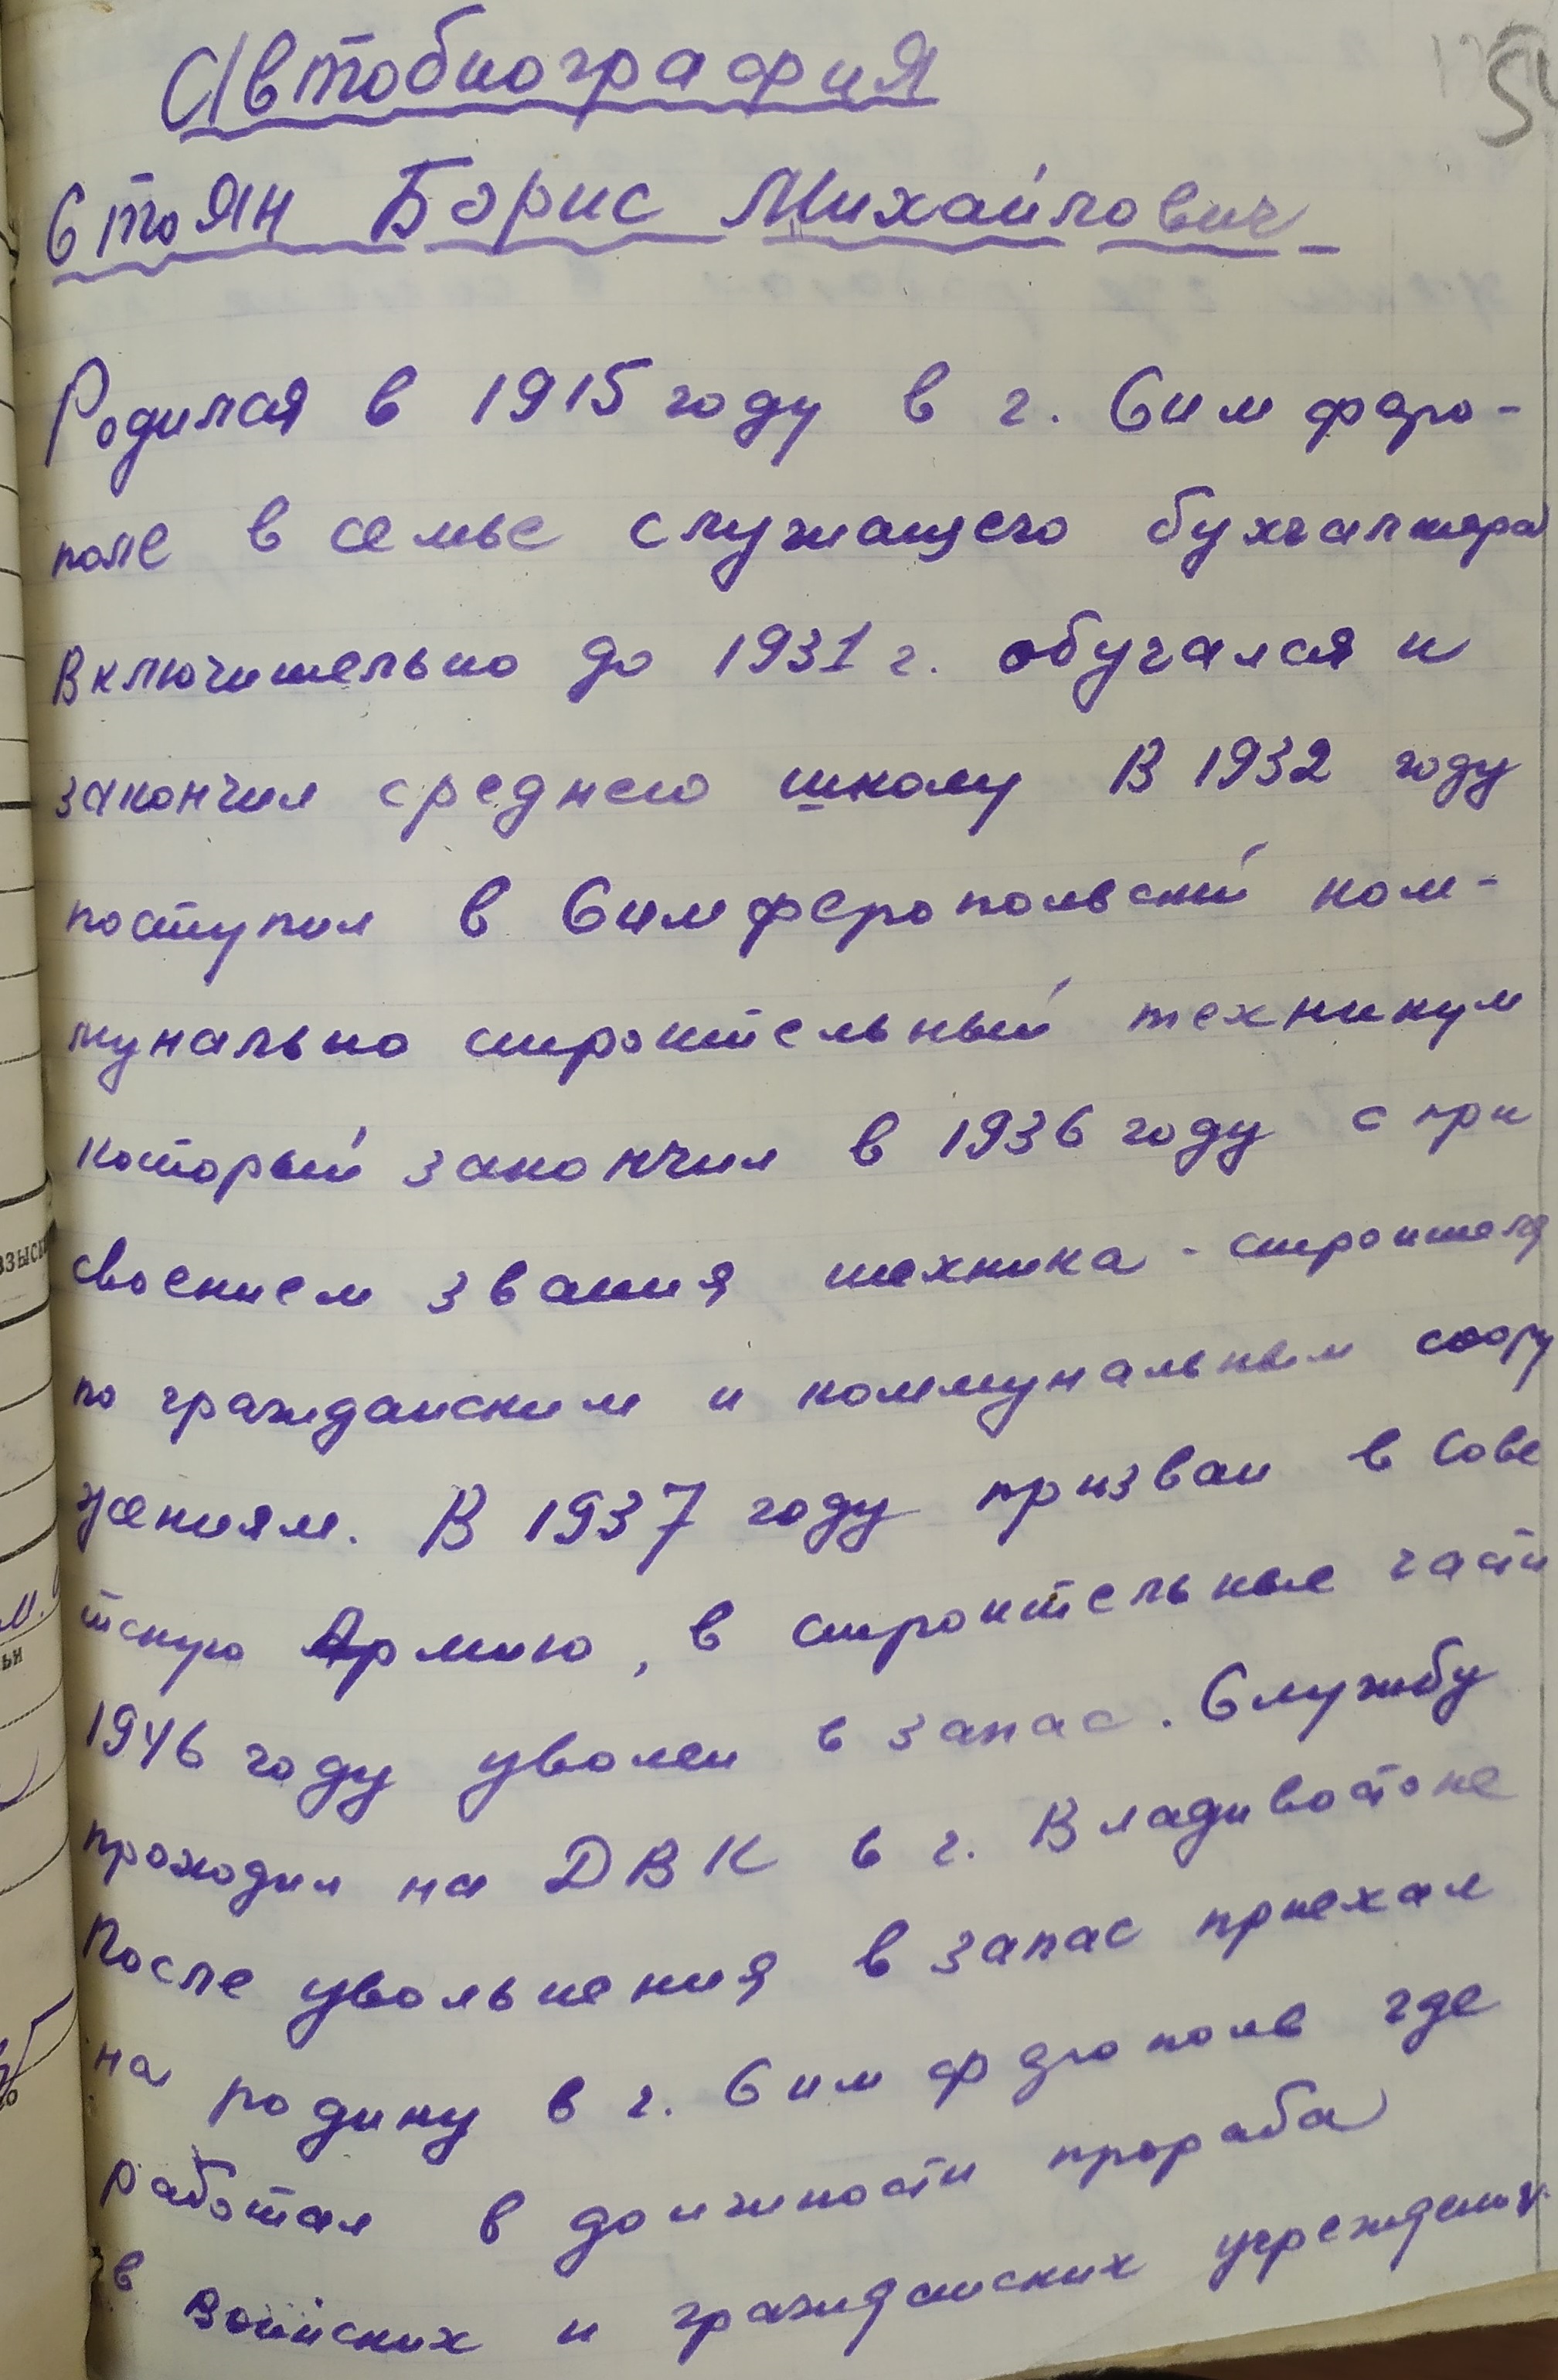 Автобиография
Стоян Борис Михайлович
Родился в 1915 году в г. Симферо-
поле в семье служащего бухгалтера
Включительно до 1931 г. обучался и
закончил среднею школу В 1932 году
поступил в Симферопольский ком-
мунально строительный техникум
который закончил в 1936 году с при
своением звания техника - строителя
по гражданским и коммунальным соору
жениям. В 1937 году призван в Сове
тскую Армию, в строительные части
1946 году уволен в запас. Службу
проходил на ДВК в г. Владивостоке
После увольнения в запас приехал
на родину в г. Симферополь где
работал в должности прораба
в воинских и гражданских учреждениях